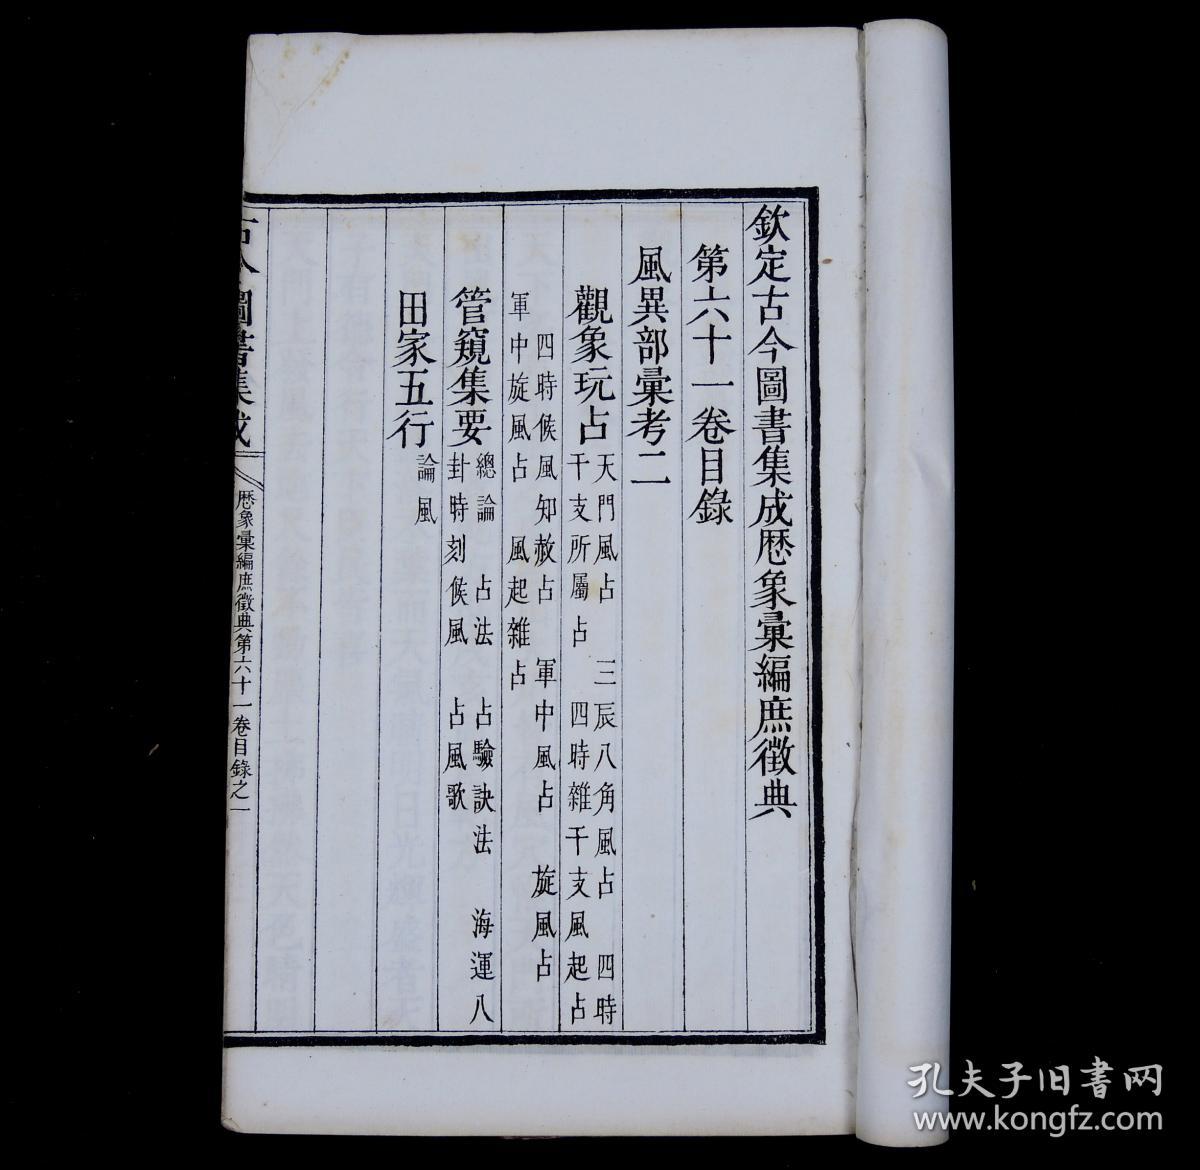 欽定古今圖書集成歷象彙編庶徵典
第六十一卷目錄
風異部彙考二
觀象玩占 天門風占 三辰八角風占 四時
干支所屬占 四時雜干支風起占
四時候風知赦占 軍中風占 旋風占
軍中旋風占 風起雜占
管窺集要 總論 占法 占驗訣法 海運八
卦時刻候風 占風歌
田家五行 論風
古今圖書集成
歷象彙編庶徵典第六十一卷目錄之一
孔夫子旧书网
www.kongfz.com